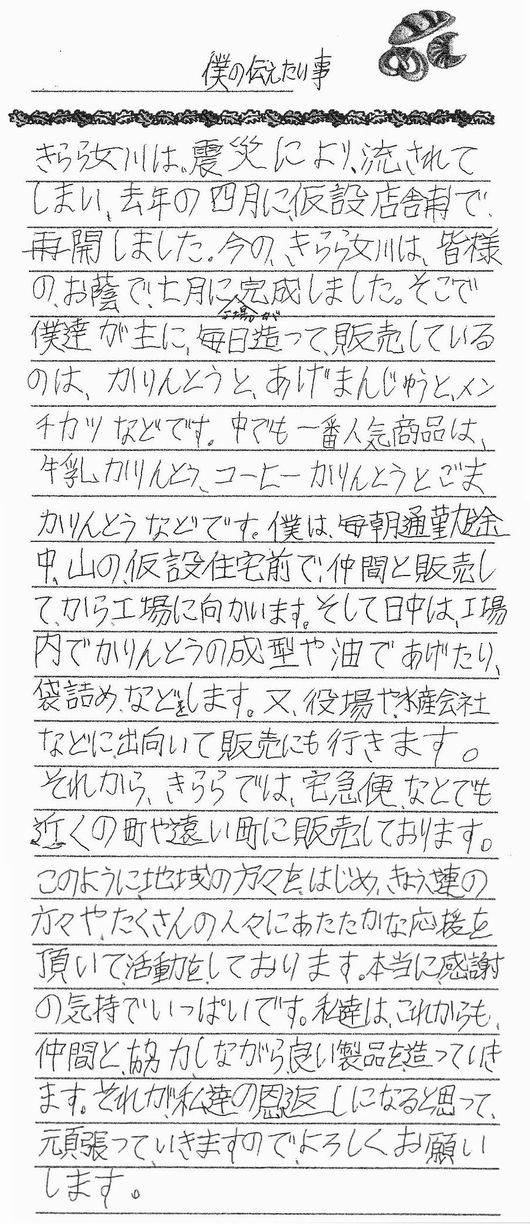 僕の伝えたい事
きらら女川は、震災により、流されて
しまい、去年の四月に、仮設店舗で、
再開しました。今の、きらら女川は、皆様
の、お蔭で、七月に工場が完成しました。そこで
僕達が主に、毎日造って、販売している
のは、かりんとうと、あげまんじゅうと、メン
チカツなどです。中でも一番人気商品は、
牛乳かりんとう、コーヒーかりんとうとごま
かりんとうなどです。僕は、毎朝通勤途
中、山の、仮設住宅前で、仲間と販売し
て、から工場に向かいます。そして日中は、工場
内でかりんとうの成型や油であげたり、
袋詰め、などをします。又、役場や、水産会社
などに、出向いて販売にも行きます。
それから、きららでは、宅急便、などでも
近くの町や遠い町に販売しております。
このように、地域の方々を、はじめ、きょう連の
方々や、たくさんの人々にあたたかな応援を
頂いて、活動をしております。本当に、感謝
の気持でいっぱいです。私達は、これからも、
仲間と、協力しながら、良い製品を造っていき
ます。それが、私達の恩返しになると思って、
頑張って、いきますので、よろしく、お願い
します。